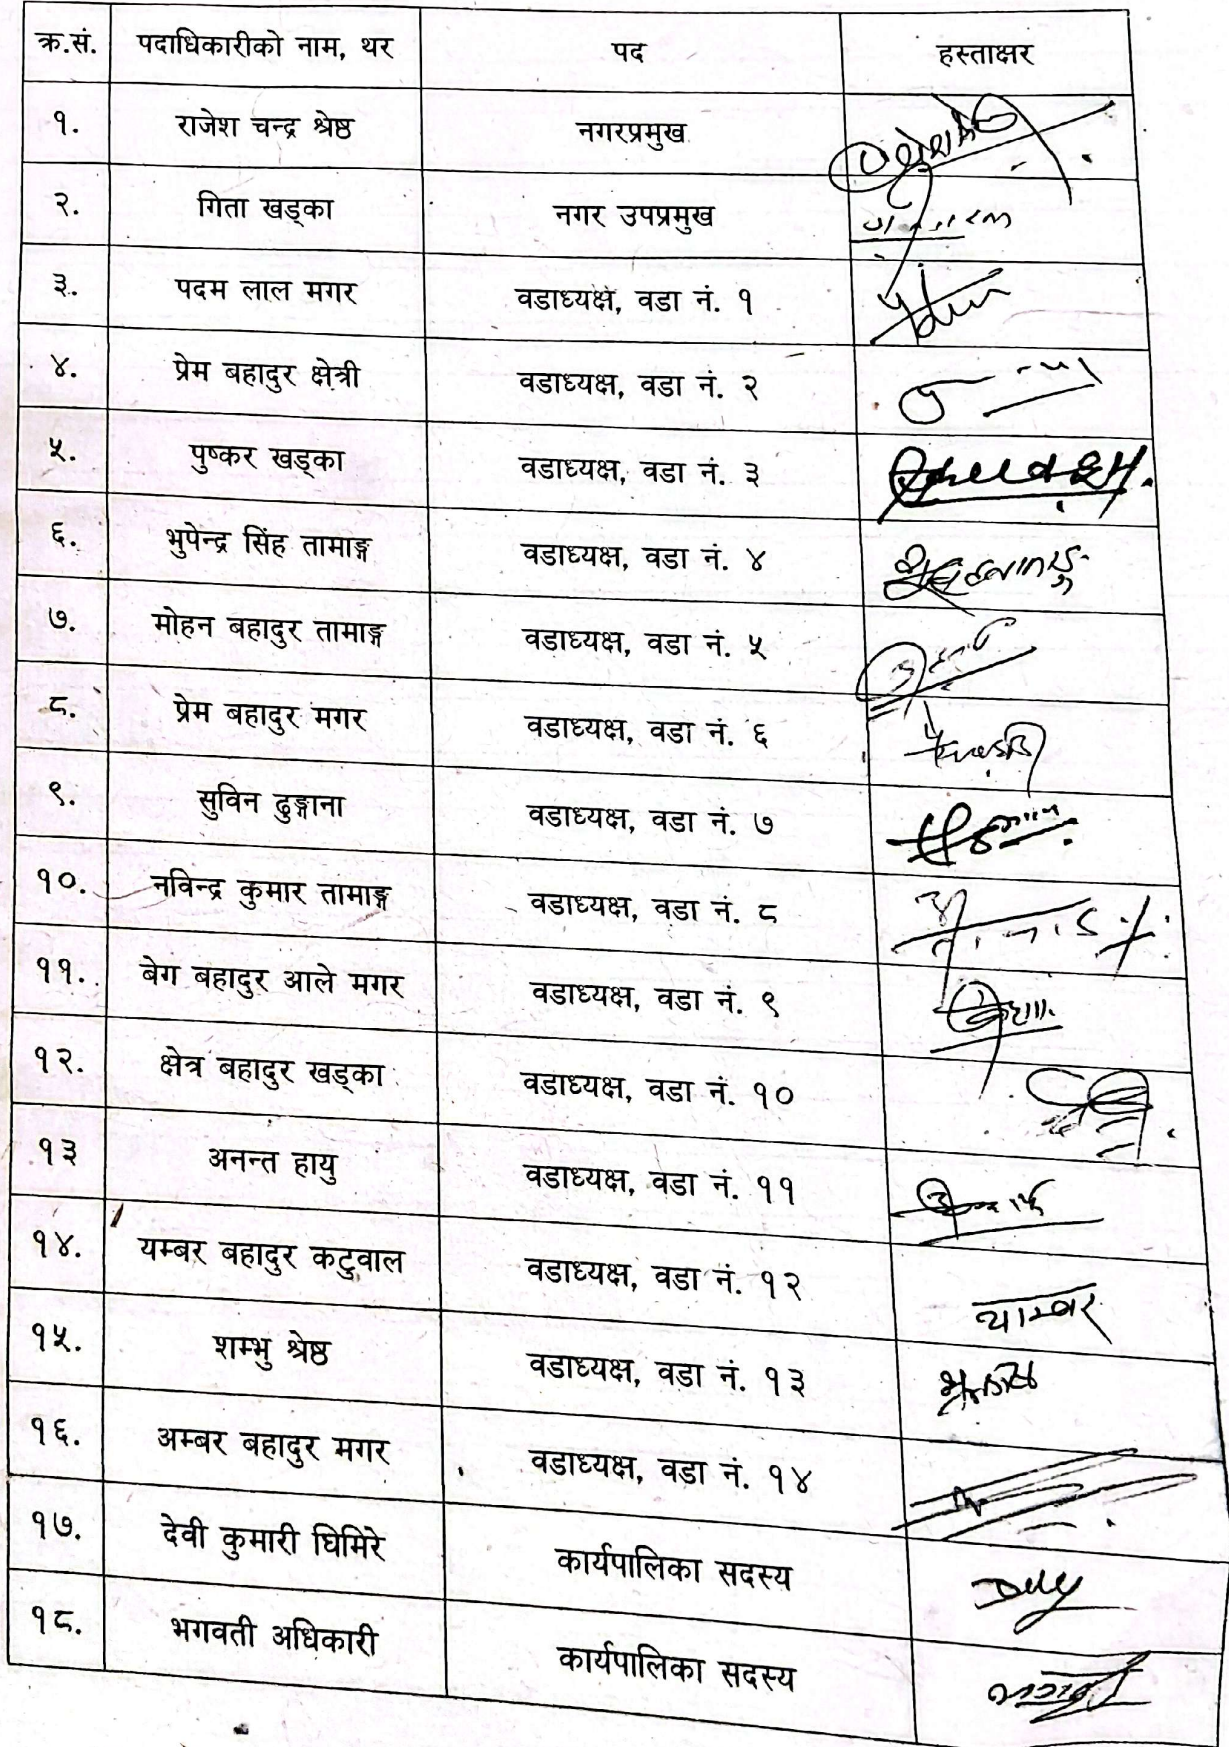 क्र.सं. पदाधिकारीको नाम, थर पद हस्ताक्षर
१. राजेश चन्द्र श्रेष्ठ नगरप्रमुख
२. गिता खड्का नगर उपप्रमुख
३. पदम लाल मगर वडाध्यक्ष, वडा नं. १
४. प्रेम बहादुर क्षेत्री वडाध्यक्ष, वडा नं. २
५. पुष्कर खड्का वडाध्यक्ष, वडा नं. ३
६. भुपेन्द्र सिंह तामाङ्ग वडाध्यक्ष, वडा नं. ४
७. मोहन बहादुर तामाङ्ग वडाध्यक्ष, वडा नं. ५
८. प्रेम बहादुर मगर वडाध्यक्ष, वडा नं. ६
९. सुविन ढुङ्गाना वडाध्यक्ष, वडा नं. ७
१०. नविन्द्र कुमार तामाङ्ग वडाध्यक्ष, वडा नं. ८
११. बेग बहादुर आले मगर वडाध्यक्ष, वडा नं. ९
१२. क्षेत्र बहादुर खड्का वडाध्यक्ष, वडा नं. १०
१३ अनन्त हायु वडाध्यक्ष, वडा नं. ११
१४. यम्बर बहादुर कटुवाल वडाध्यक्ष, वडा नं. १२
१५. शम्भु श्रेष्ठ वडाध्यक्ष, वडा नं. १३
१६. अम्बर बहादुर मगर वडाध्यक्ष, वडा नं. १४
१७. देवी कुमारी घिमिरे कार्यपालिका सदस्य
१८. भगवती अधिकारी कार्यपालिका सदस्य